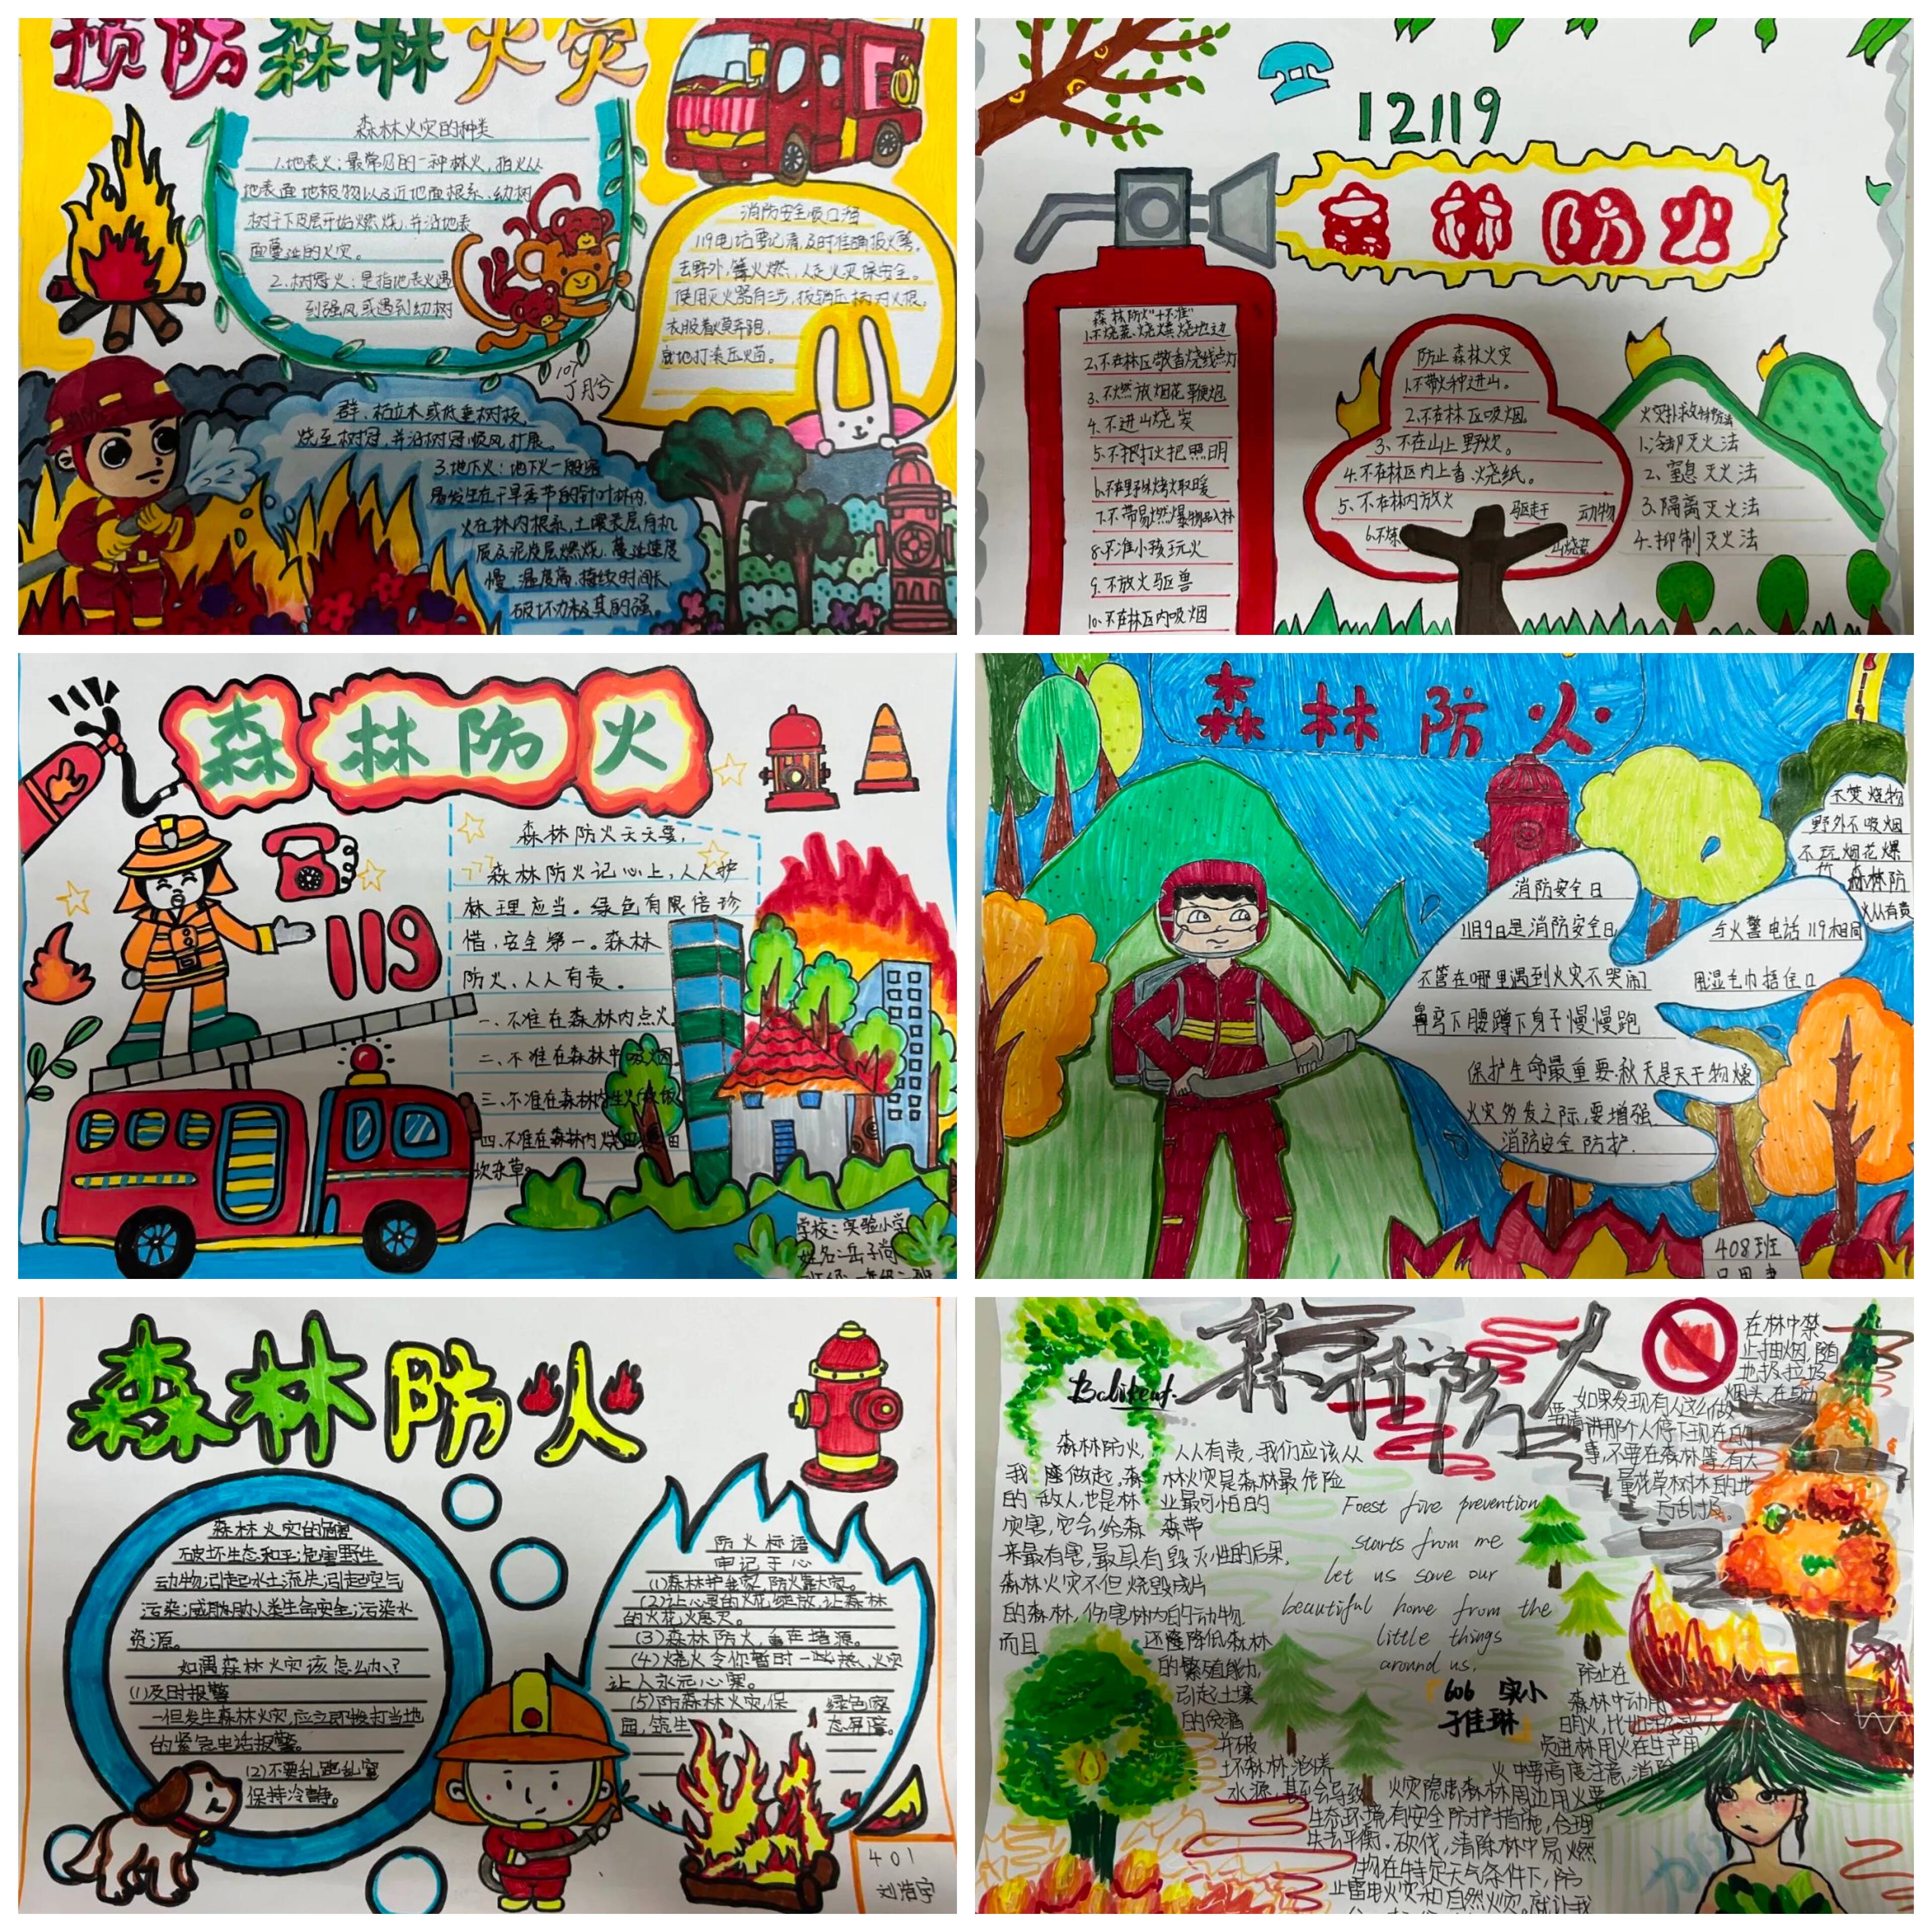 预防森林火灾
森林火灾的种类
1.地表火:最常见的一种林火,指火从
地表面地被物以及近地面根系、幼树
树干下皮层开始燃烧,并沿地表
面蔓延的火灾。
2.树冠火:是指地表火遇
到强风或遇到幼树
群、枯立木或低垂树枝,
烧至树冠,并沿树冠顺风扩展。
3.地下火:地下火一般
易发生在干旱季节的针叶林内,
火在林内根系,土壤表层有机
质及泥炭层燃烧,蔓延速度
慢,温度高,持续时间长,
破坏力极其的强。
消防安全顺口溜
119电话要记清,及时准确报火警。
去野外,篝火燃,人走火灭保安全。
使用灭火器有三步,拔销压柄对火根。
衣服着火莫奔跑,
就地打滚压火苗。
107
丁月兮
12119
森林防火
森林防火"十不准"
1.不烧荒、烧煤、烧地边
2.不在林区敬香烧钱点灯
3.不燃放烟花鞭炮
4.不进山烧炭
5.不把打火把照明
6.不在野外烤火取暖
7.不带易燃爆物品入林
8.不准小孩玩火
9.不放火驱兽
10.不在林区内吸烟
防止森林火灾
1.不带火种进山。
2.不在林区吸烟。
3.不在山上野炊。
4.不在林区内上香、烧纸。
5.不在林内放火
驱走于 动物
6.不炼
山烧荒
火灾扑救的方法
1.冷却灭火法
2.窒息灭火法
3.隔离灭火法
4.抑制灭火法
森林防火
119
森林防火天天要,
森林防火记心上,人人护
林理应当。绿色有限倍珍
借,安全第一。森林
防火、人人有责。
一、不准在森林内点火。
二、不准在森林中吸烟。
三、不准在森林内生火做饭
四、不准在森林内烧
坎杂草。
学校:实验小学
姓名:岳子尚
森林防火
消防安全日
11月9日是消防安全日
与火警电话119相同
不管在哪里遇到火灾不哭闹
用湿毛巾捂住口
鼻弯下腰蹲下身子慢慢跑
保护生命最重要.秋天是天干物燥
火灾多发之际,要增强
消防安全防护.
不焚烧物
野外不吸烟
不玩烟花爆
竹 森林防
火从有责
408班
森林防火
森林火灾的危害
破坏生态和平;危害野生
动物;引起水土流失;引起空气
污染;威胁人类生命安全;污染水
资源。
如遇森林火灾该怎么办?
(1)及时报警
一但发生森林火灾,应立即拨打当地
的紧急电话报警。
(2)不要乱跑乱窜
保持冷静。
防火标语
牢记于心
(1)森林护我家,防火靠大家。
(2)让心里的火花绽放,让森林
的火花火熄灭。
(3)森林防火,重在堵源。
(4)烧火令你暂时一些热,火灾
让人永远心寒。
(5)防森林火灾,保 绿色家
园,筑生 态屏障。
401
刘浩宇
森林防火
森林防火,人人有责,我们应该从
我 座做起,森 林火灾是森林最危险
的敌人,也是林 业最可怕的
灾害,它会给森 森带
来最有害,最具有毁灭性的后果,
森林火灾不但烧毁成片
的森林,伤害林内的动物
而且 还降低森林
的繁殖能力,
引起土壤
的贫瘠
并破
坏森林,涵养
水源,甚至会导致
生态环境
失去平衡。
Foest fire prevention
starts from me
let us save our
beautiful home from the
little things
around us.
606 实小
于佳琳
在林中禁
止抽烟,随
地扔垃圾
烟头,在
如果发现有人这么做
要请讲那个人停下现在的
事,不要在森林等,有大
量花草树林目的地
方乱扔。
防止在
森林中动用
明火,
员进林用火在生产用
火中要高度注意,消除
火灾隐患,森林周边用火要
有安全防护措施,合理
砍伐,清除林中易燃
物在特定天气条件下,防
止雷电火灾和自然火灾。就让我